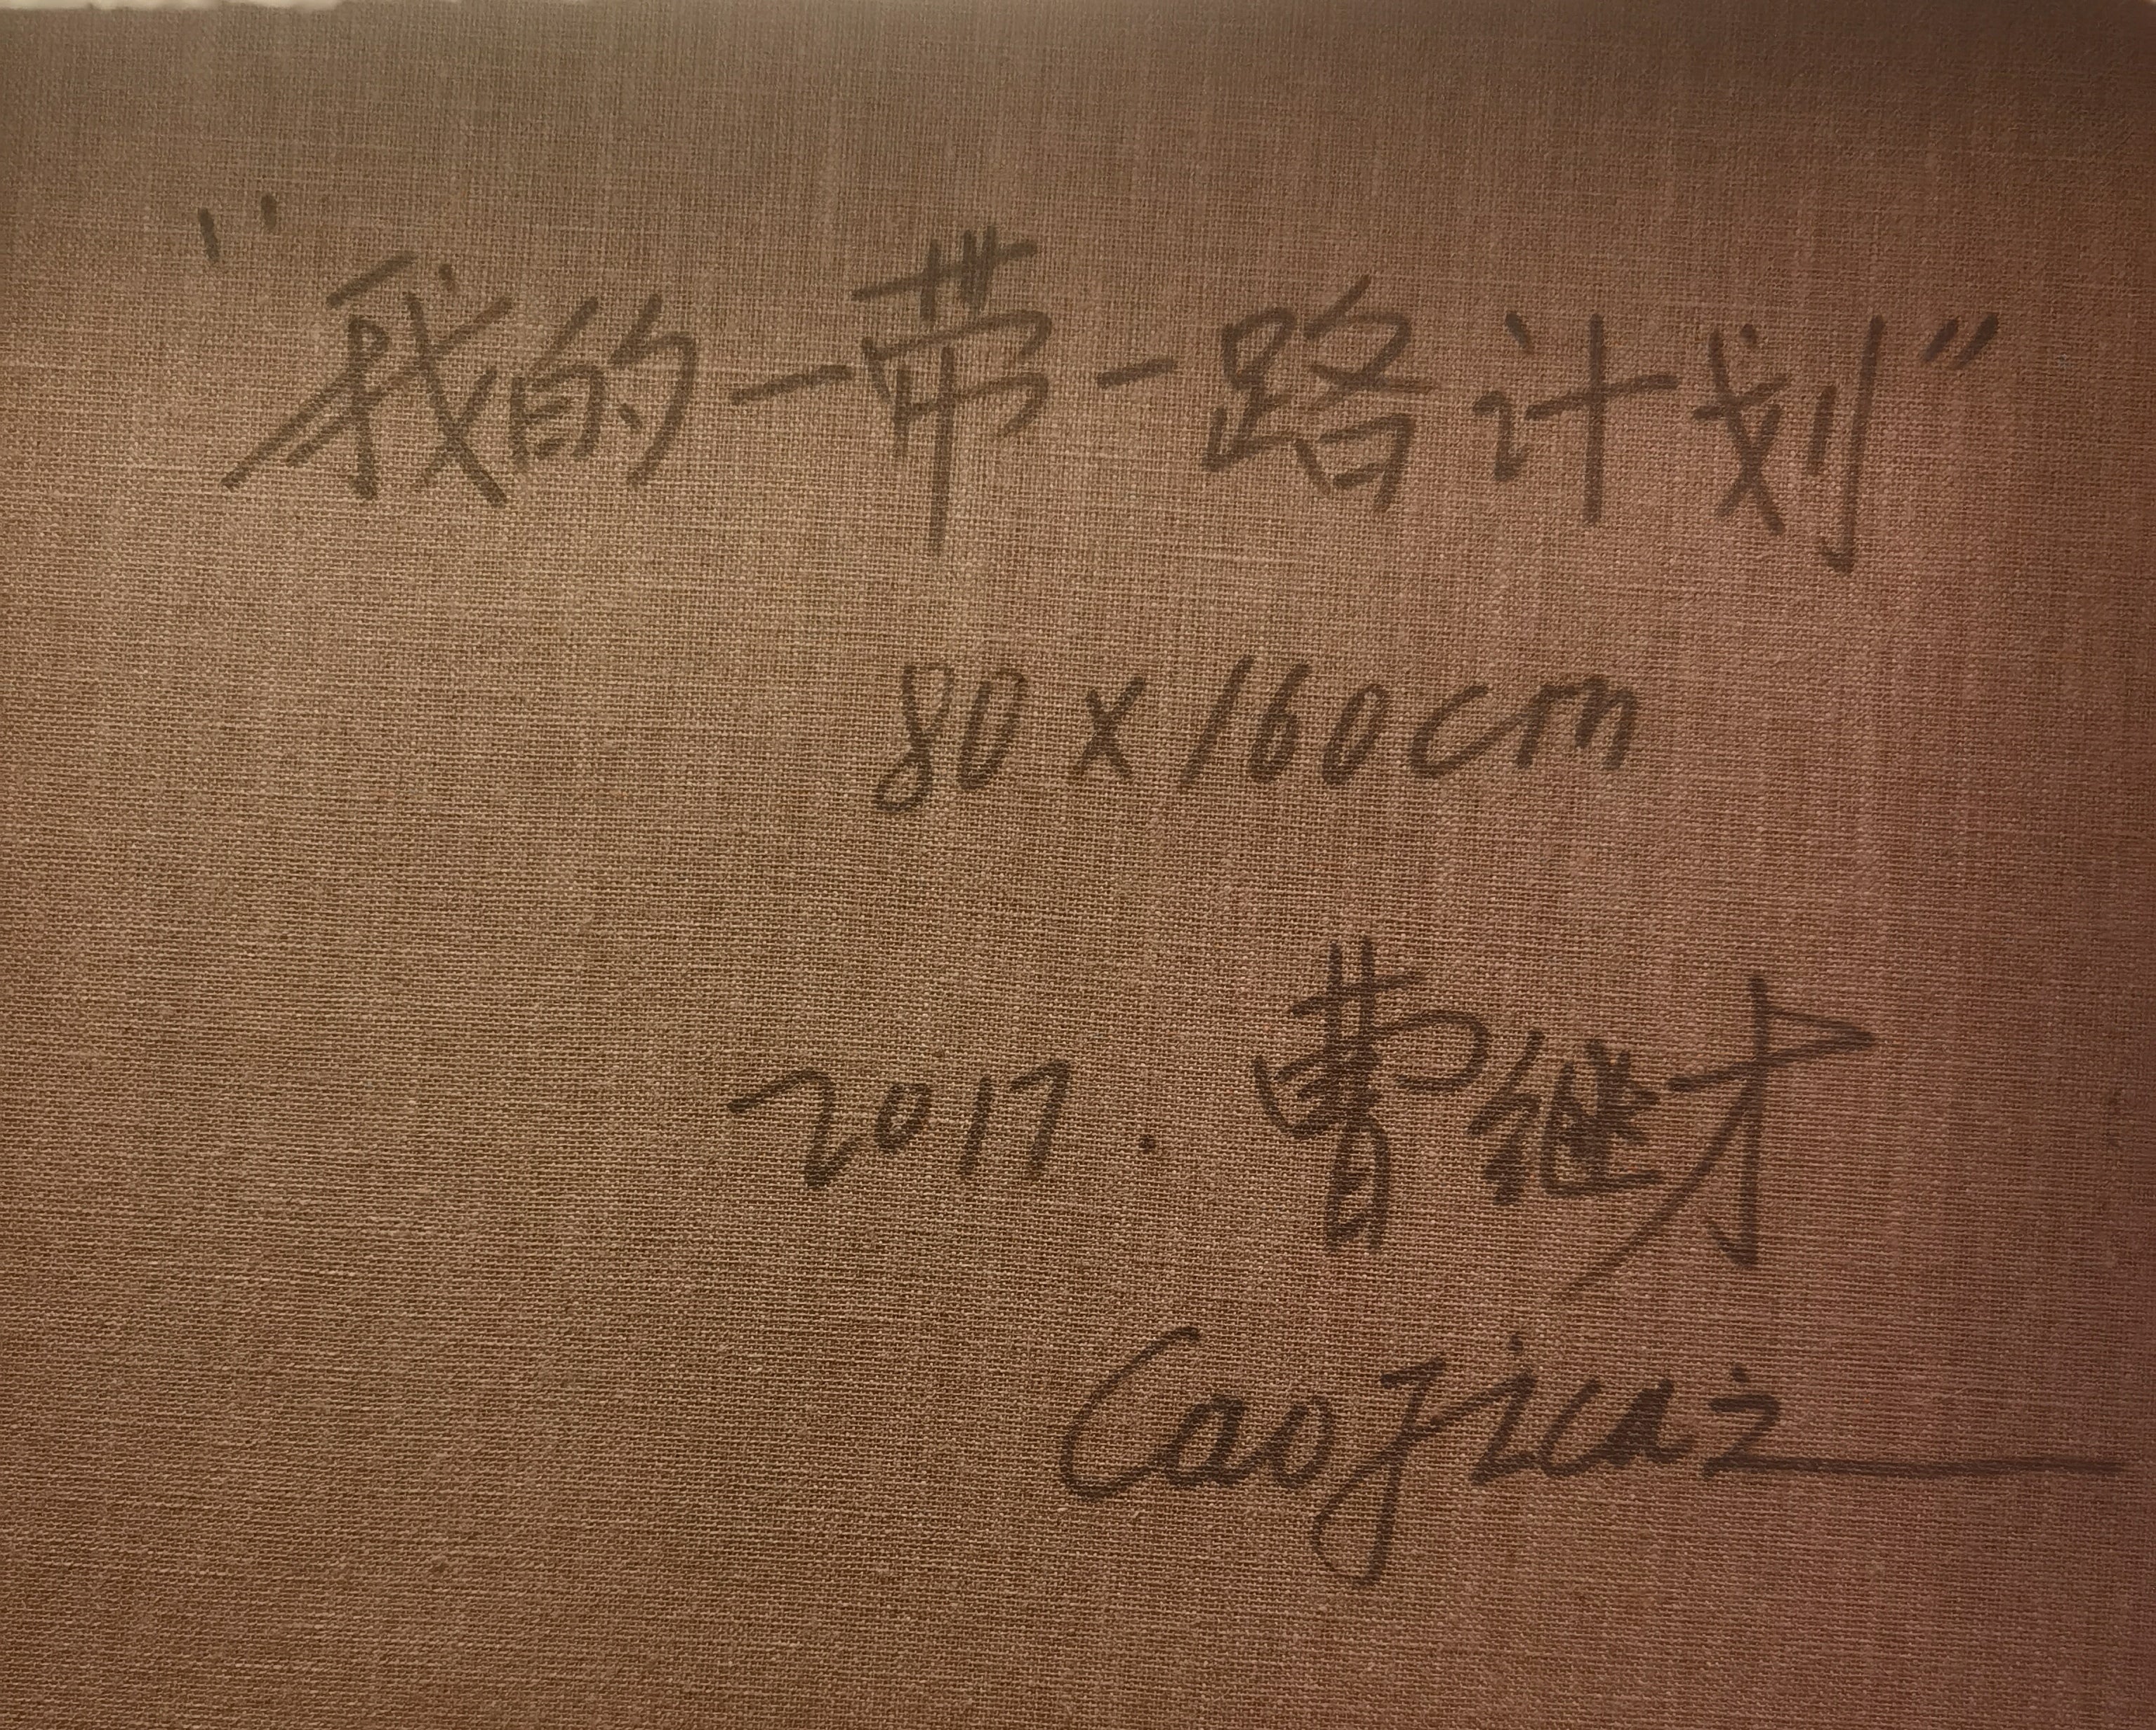 "我的一带一路计划"
80x160cm
2017. 曹继才
Caojicai